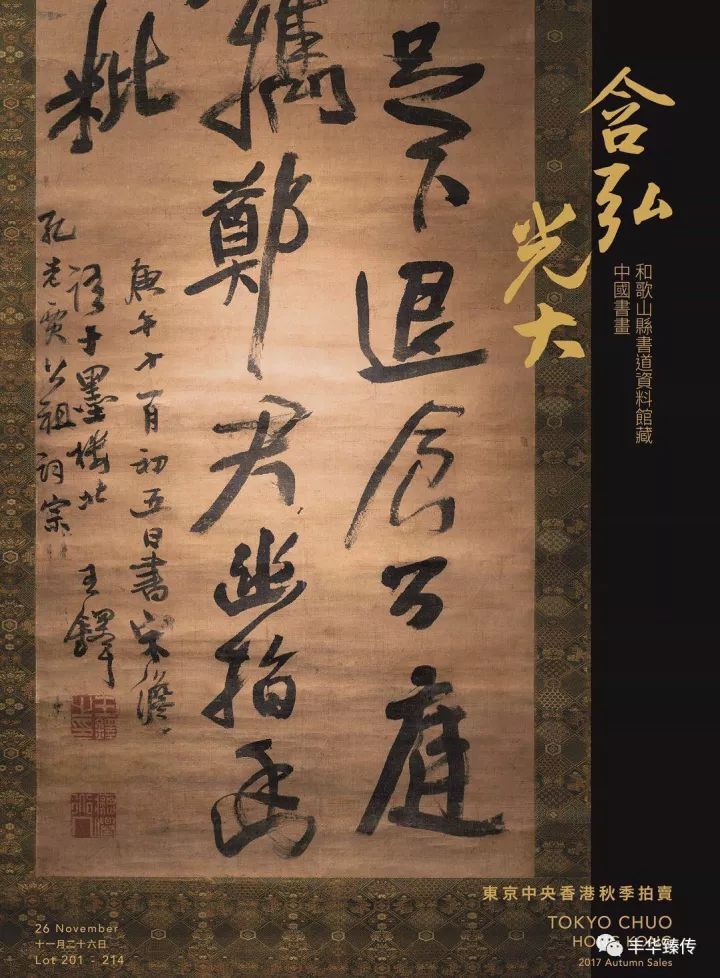 含弘光大
和歌山縣書道資料館藏
中國書畫
足下退食公庭
攜鄭君幽指
粃
庚午十一月初五日書宋儋
語于墨樓北
孔老賓公祖詞宗 王鐸
東京中央香港秋季拍賣
TOKYO CHUO
HONG KONG
2017 Autumn Sales
26 November
十一月二十六日
Lot 201 - 214
丰华臻传